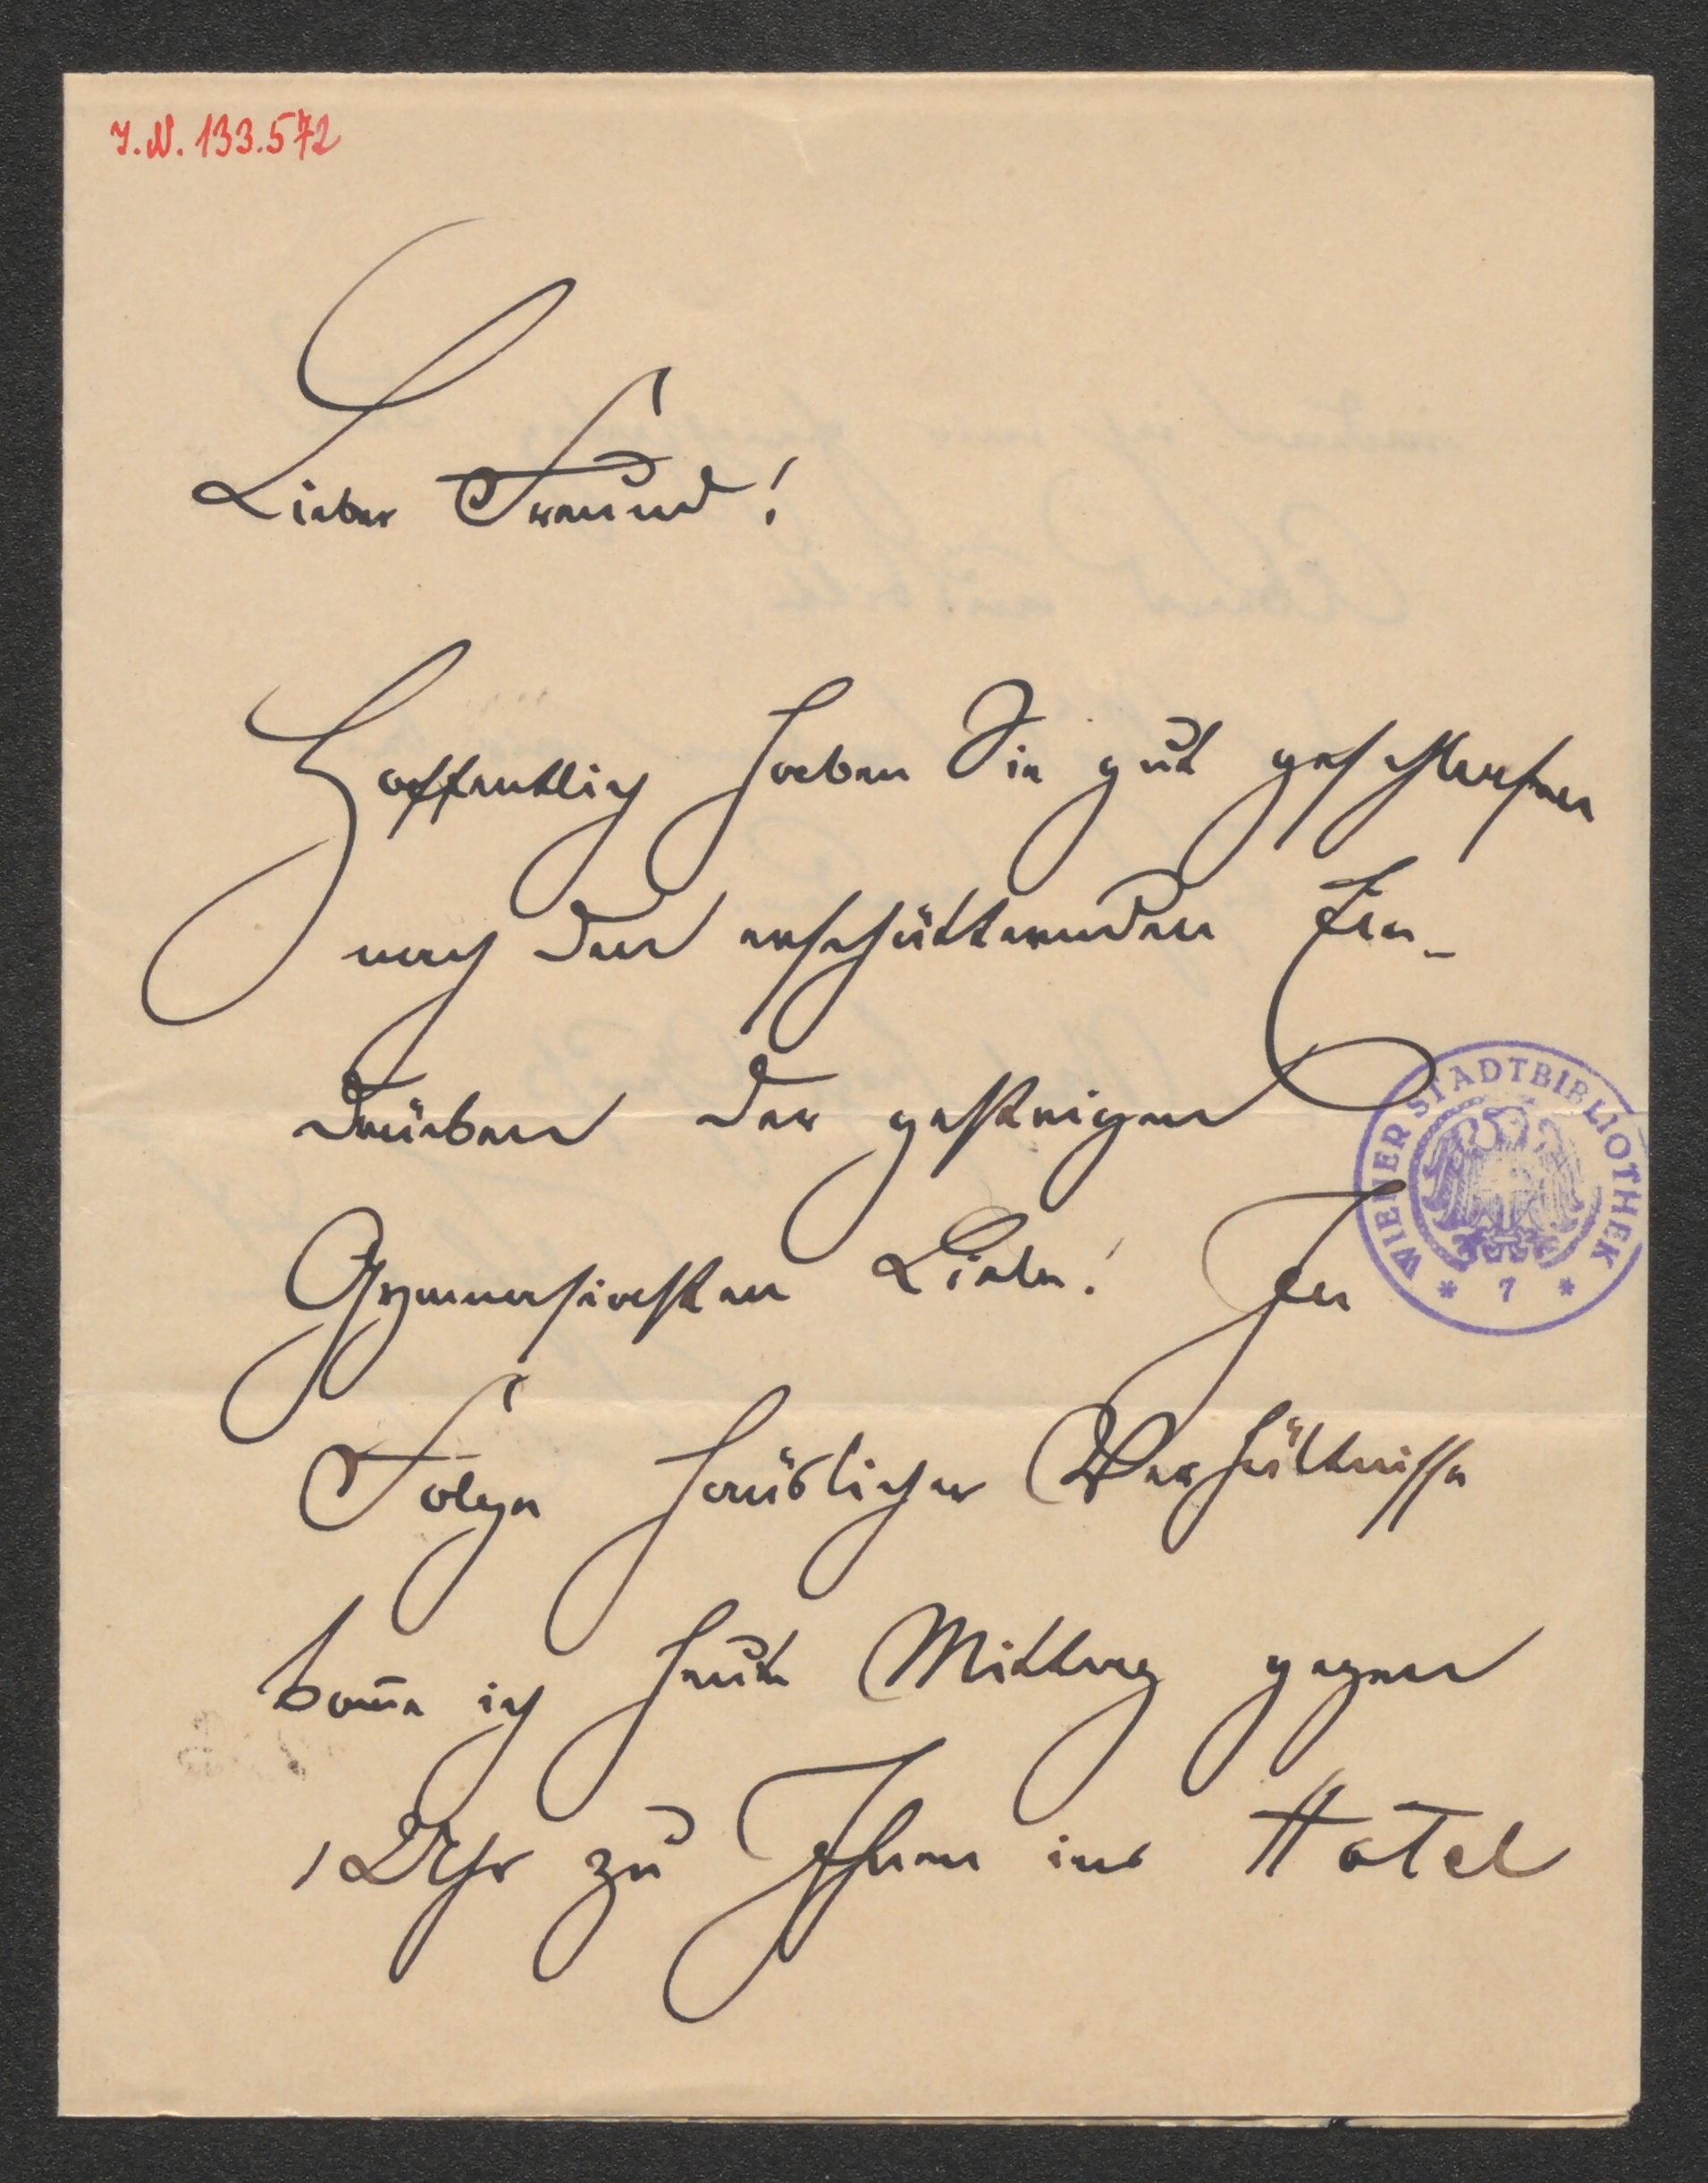 I.N. 133.572
Lieber Freund!
Hoffentlich haben Sie gut geschlafen
nach den erschütternden Ein-
drücken der gestrigen
Gymnasiasten Liebe! In
Folge häuslicher Verhältnisse
kom̅e ich heute Mittag gegen
1 Uhr zu Ihnen ins Hotel
WIENER STADTBIBLIOTHEK
* 7 *